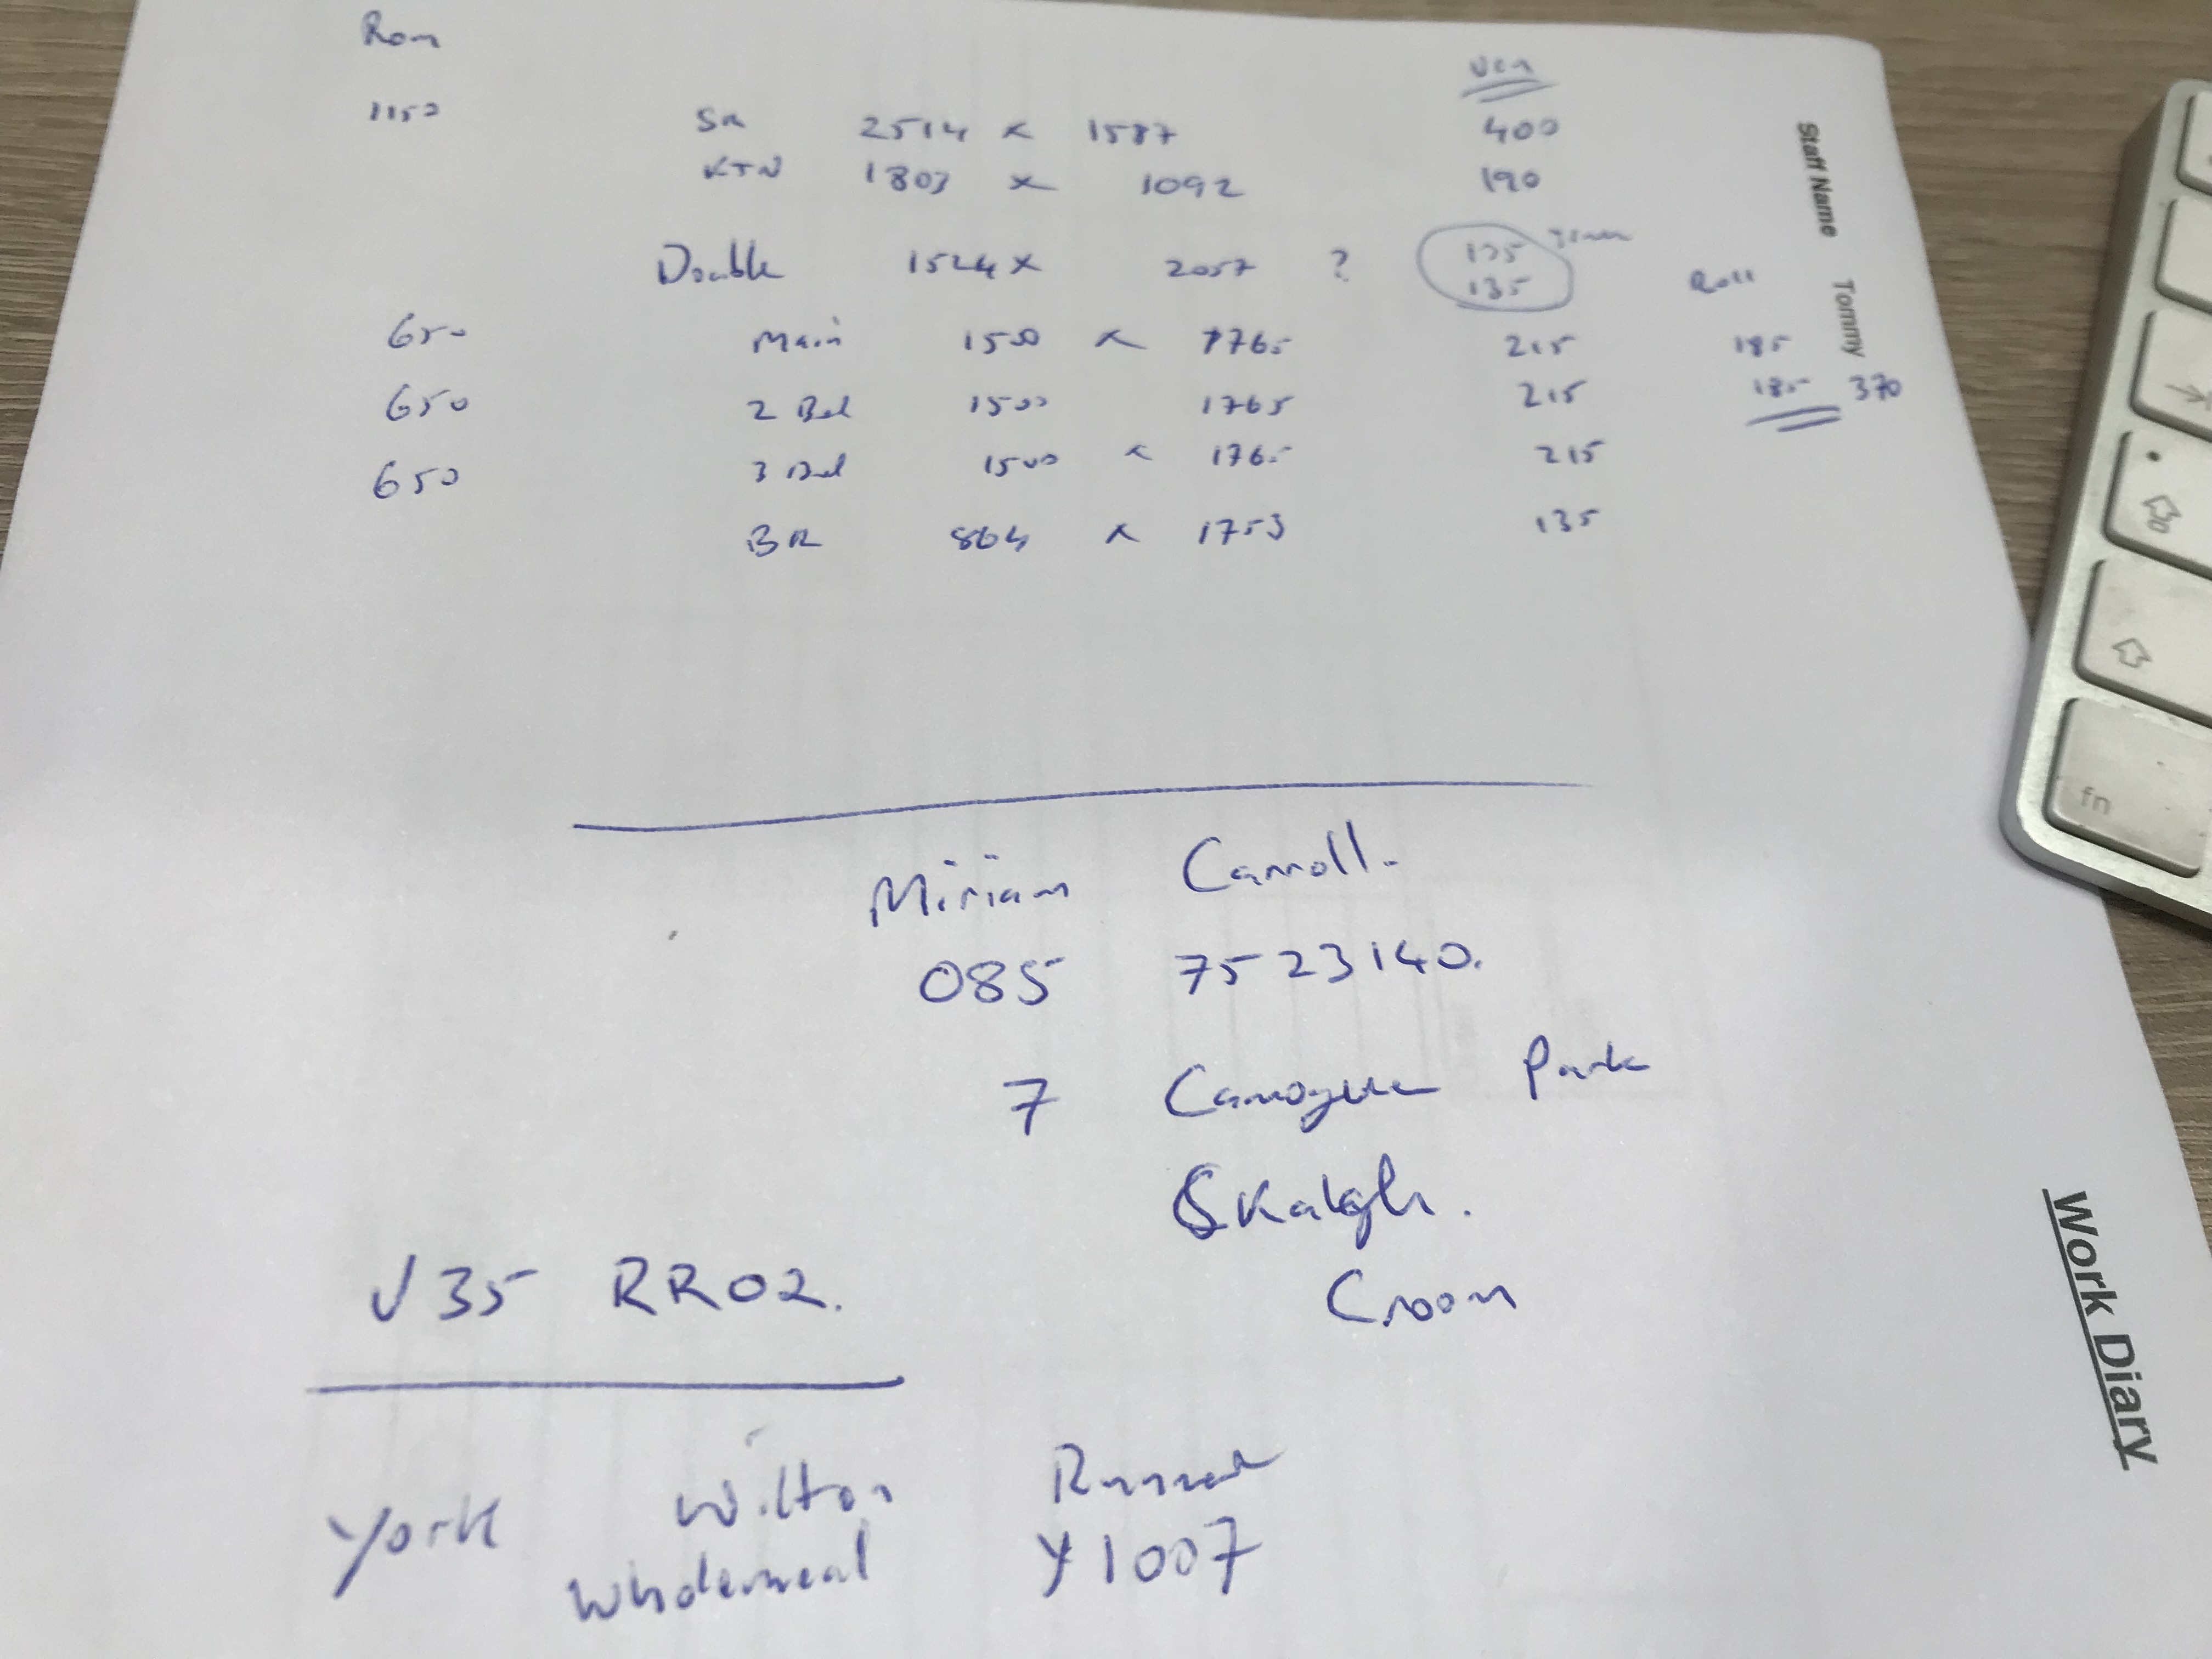 Rom
Ven
1150 SR 2514 x 1587 400
KTN 1803 x 1092 190
Double 1524 x 2057 ? 135
135
Roll
650 Main 1500 x 1765 215 185
650 2 Bed 1500 1765 215 185 370
650 3 Bed 1500 x 1765 215
BR 864 x 1753 135
Miriam Carroll.
085 7523140.
7 Camogue Park
Skalgh.
Croom
V35 RR02.
York Wilton Runner
Wholemeal Y1007
Staff Name Tommy
Work Diary
fn